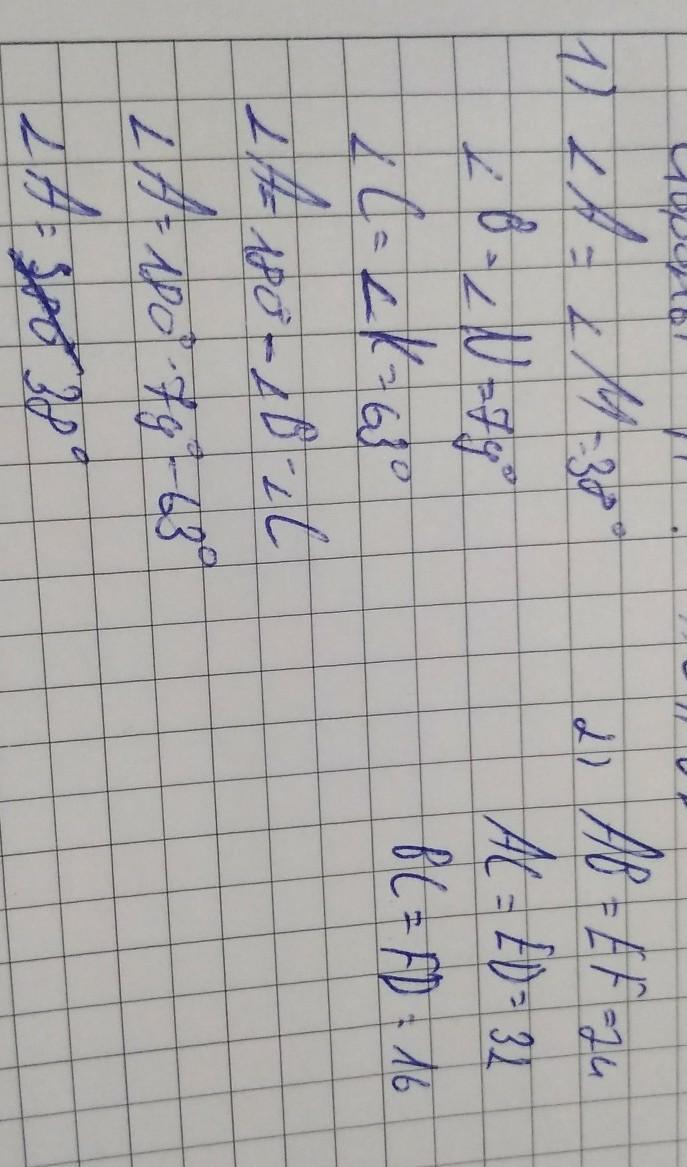 1) ∠A = ∠M = 38°
∠B = ∠N = 79°
∠C = ∠K = 63°
∠A = 180° - ∠B - ∠C
∠A = 180° - 79° - 63°
∠A = 38°
2) AB = EF = 24
AC = ED = 32
BC = FD = 16